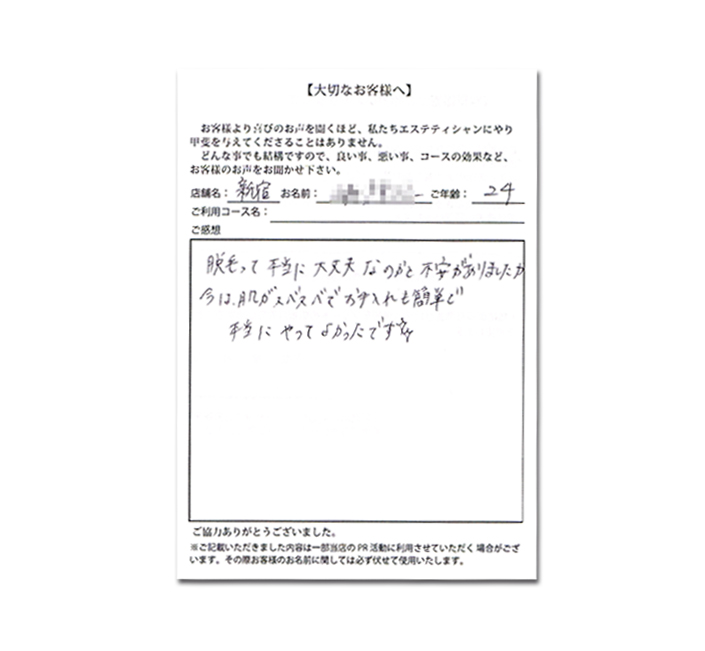 【大切なお客様へ】
お客様より喜びのお声を聞くほど、私たちエステティシャンにやり
甲斐を与えてくださることはありません。
どんな事でも結構ですので、良い事、悪い事、コースの効果など、
お客様のお声をお聞かせ下さい。
店舗名： 新宿 お名前： ご年齢： 24
ご利用コース名：
ご感想
脱毛って本当に大丈夫なのかと不安がありましたが
今は、肌がスベスベでお手入れも簡単で
本当にやってよかったです☆
ご協力ありがとうございました。
※ご記載いただきました内容は一部当店のPR活動に利用させていただく場合がござ
います。その際お客様のお名前に関しては必ず伏せて使用いたします。